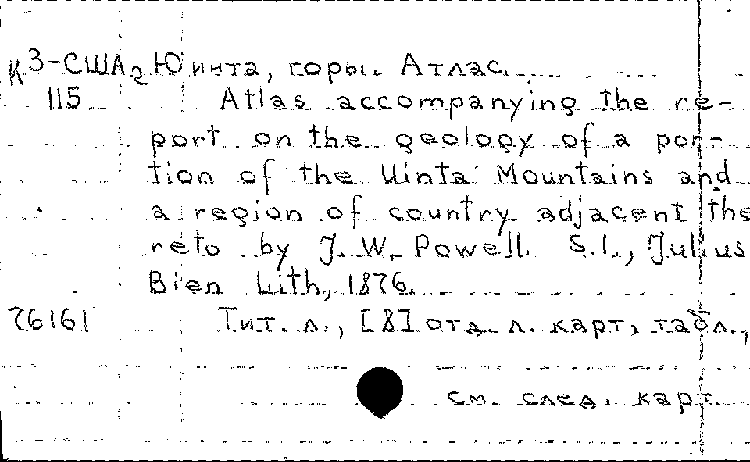 К3-США2 Юинта, горы. Атлас.
115 Atlas accompanying the re-
port on the geology of a por-
tion of the Uinta Mountains and
a region of country adjacent the
reto by J. W. Powell. S.l., Julius
Bien Lith, 1876.
76161 Тит. л., [8] отд. л. карт, табл.,
см. след. карт.